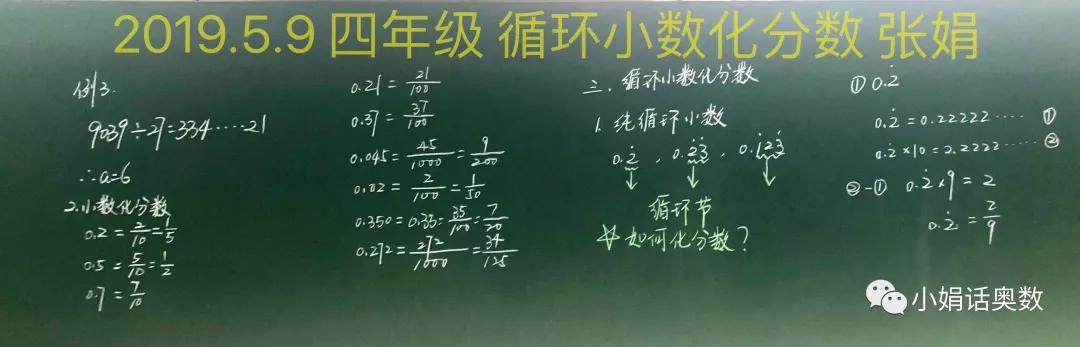 2019.5.9 四年级 循环小数化分数 张娟
例3.
9039÷27=334·····21
∴a=6
2.小数化分数
0.2=2/10=1/5
0.5=5/10=1/2
0.7=7/10
0.21=21/100
0.37=37/100
0.045=45/1000=9/200
0.02=2/100=1/50
0.350=0.35=35/100=7/20
0.272=272/1000=34/125
三.循环小数化分数
1.纯循环小数
0.2̇，0.2̇3̇，0.1̇23̇
循环节
如何化分数？
① 0.2̇
0.2̇=0.22222····· ①
0.2̇×10=2.2222····· ②
②-① 0.2̇×9=2
0.2̇=2/9
小娟话奥数